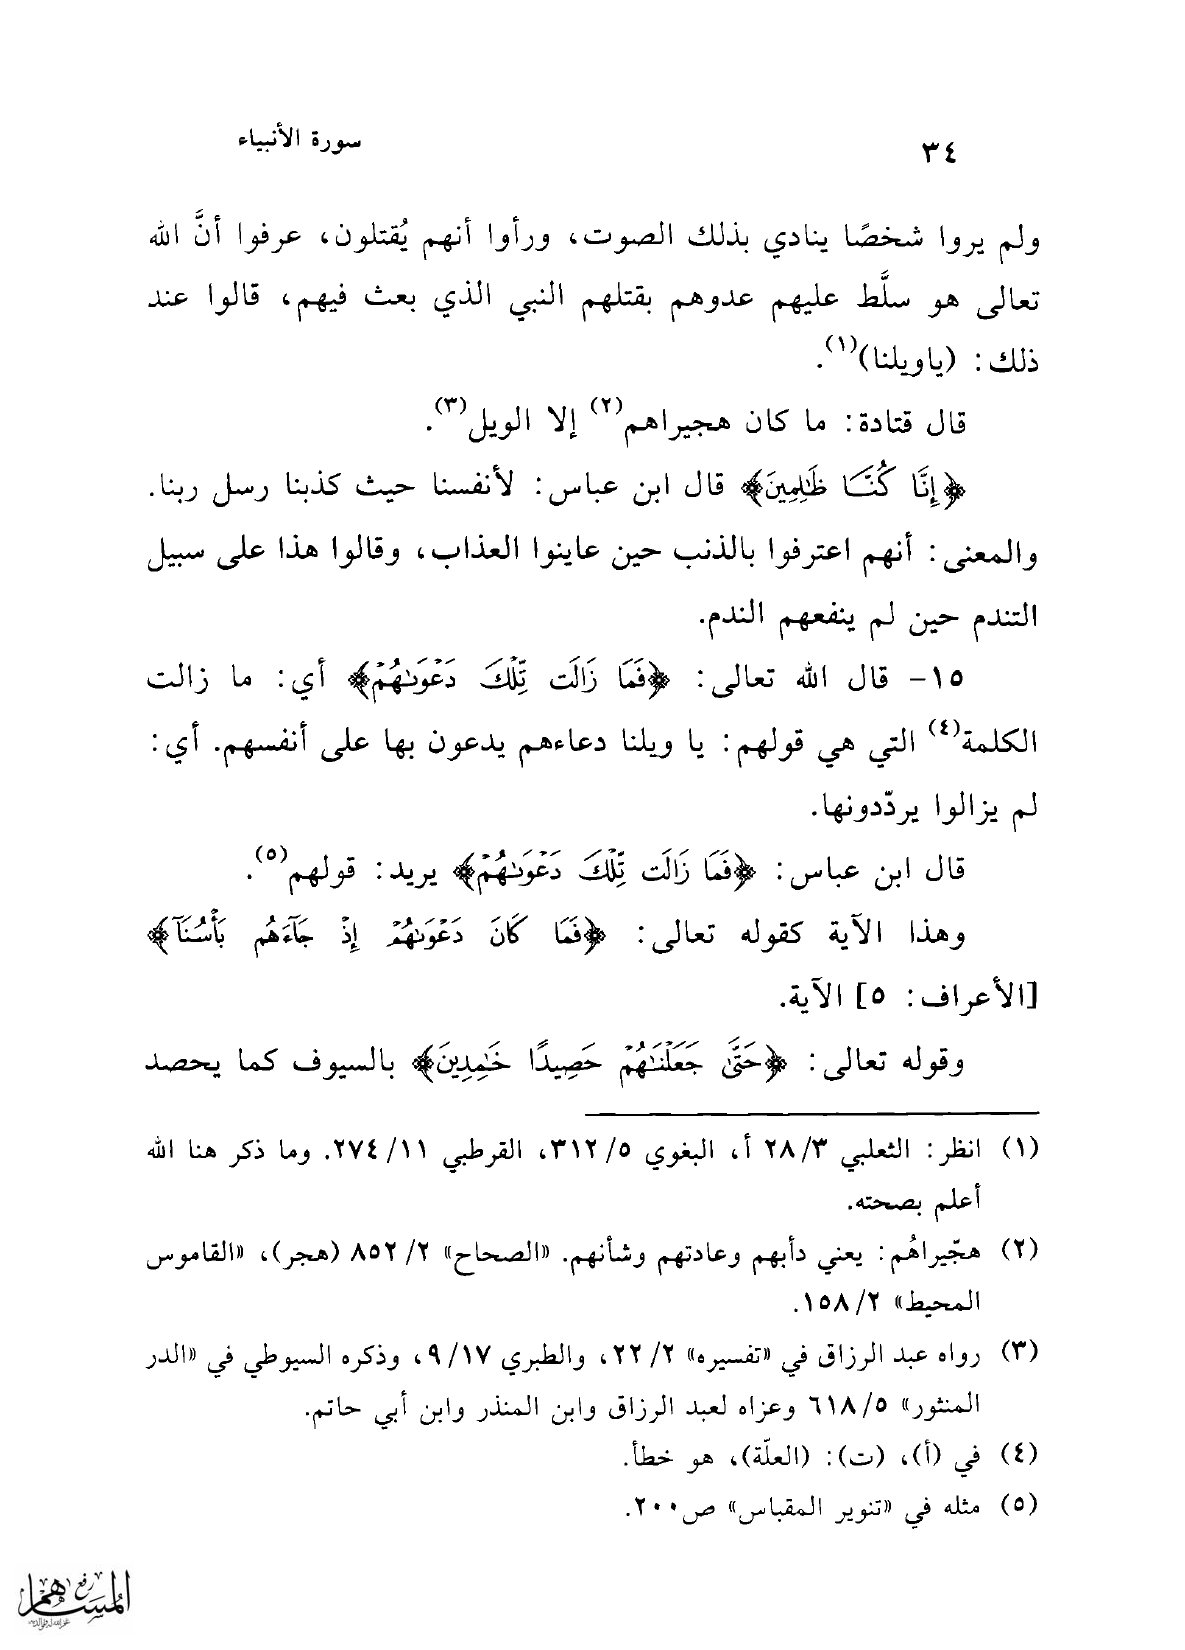 ٣٤
سورة الأنبياء
ولم يروا شخصًا ينادي بذلك الصوت، ورأوا أنهم يُقتلون، عرفوا أنَّ الله
تعالى هو سلَّط عليهم عدوهم بقتلهم النبي الذي بعث فيهم، قالوا عند
ذلك: (ياويلنا)(١).
قال قتادة: ما كان هجيراهم(٢) إلا الويل(٣).
﴿إِنَّا كُنَّا ظَٰلِمِينَ﴾ قال ابن عباس: لأنفسنا حيث كذبنا رسل ربنا.
والمعنى: أنهم اعترفوا بالذنب حين عاينوا العذاب، وقالوا هذا على سبيل
التندم حين لم ينفعهم الندم.
١٥- قال الله تعالى: ﴿فَمَا زَالَت تِّلْكَ دَعْوَىٰهُمْ﴾ أي: ما زالت
الكلمة(٤) التي هي قولهم: يا ويلنا دعاءهم يدعون بها على أنفسهم. أي:
لم يزالوا يردّدونها.
قال ابن عباس: ﴿فَمَا زَالَت تِّلْكَ دَعْوَىٰهُمْ﴾ يريد: قولهم(٥).
وهذا الآية كقوله تعالى: ﴿فَمَا كَانَ دَعْوَىٰهُمْ إِذْ جَآءَهُم بَأْسُنَآ﴾
[الأعراف: ٥] الآية.
وقوله تعالى: ﴿حَتَّىٰ جَعَلْنَٰهُمْ حَصِيدًا خَٰمِدِينَ﴾ بالسيوف كما يحصد
(١) انظر: الثعلبي ٢٨/٣ أ، البغوي ٣١٢/٥، القرطبي ٢٧٤/١١. وما ذكر هنا الله
أعلم بصحته.
(٢) هجّيراهُم: يعني دأبهم وعادتهم وشأنهم. «الصحاح» ٨٥٢/٢ (هجر)، «القاموس
المحيط» ١٥٨/٢.
(٣) رواه عبد الرزاق في «تفسيره» ٢٢/٢، والطبري ٩/١٧، وذكره السيوطي في «الدر
المنثور» ٦١٨/٥ وعزاه لعبد الرزاق وابن المنذر وابن أبي حاتم.
(٤) في (أ)، (ت): (العلّة)، هو خطأ.
(٥) مثله في «تنوير المقباس» ص٢٠٠.
رفع
المساهم